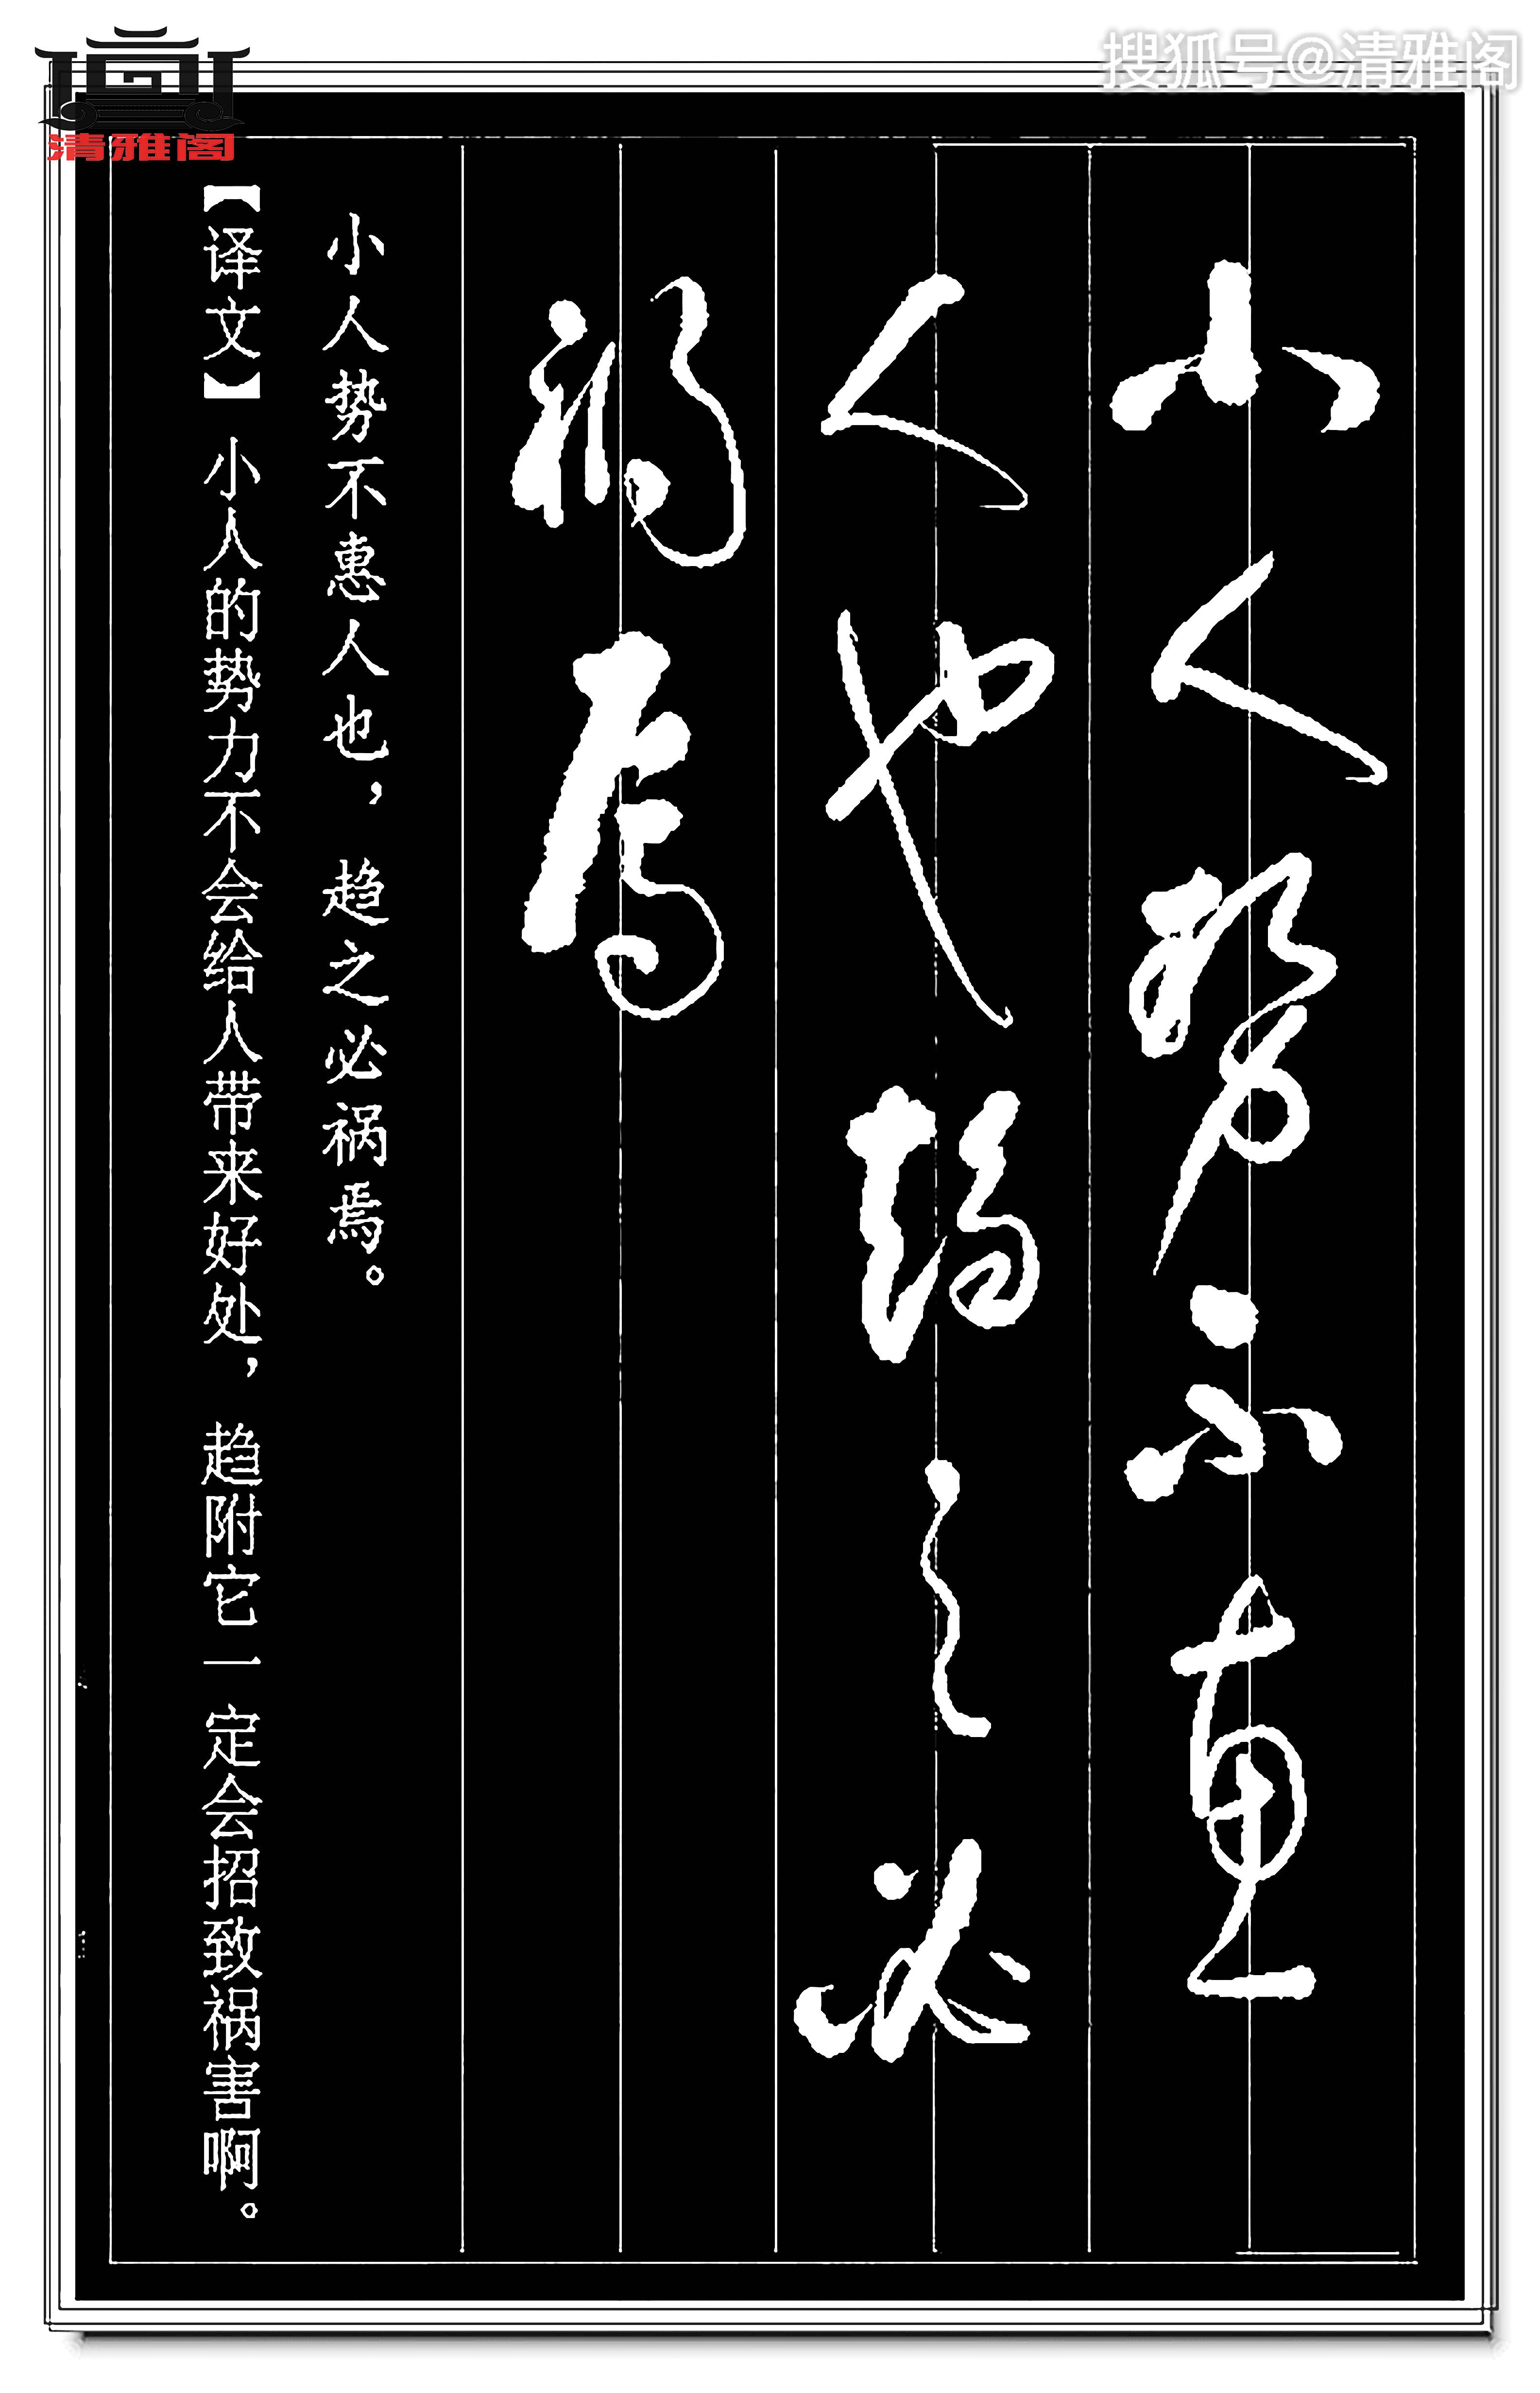 搜狐号@清雅阁
清雅阁
小人势不惠
人也趋之必
祸焉
小人势不惠人也，趋之必祸焉。
【译文】小人的势力不会给人带来好处，趋附它一定会招致祸害啊。